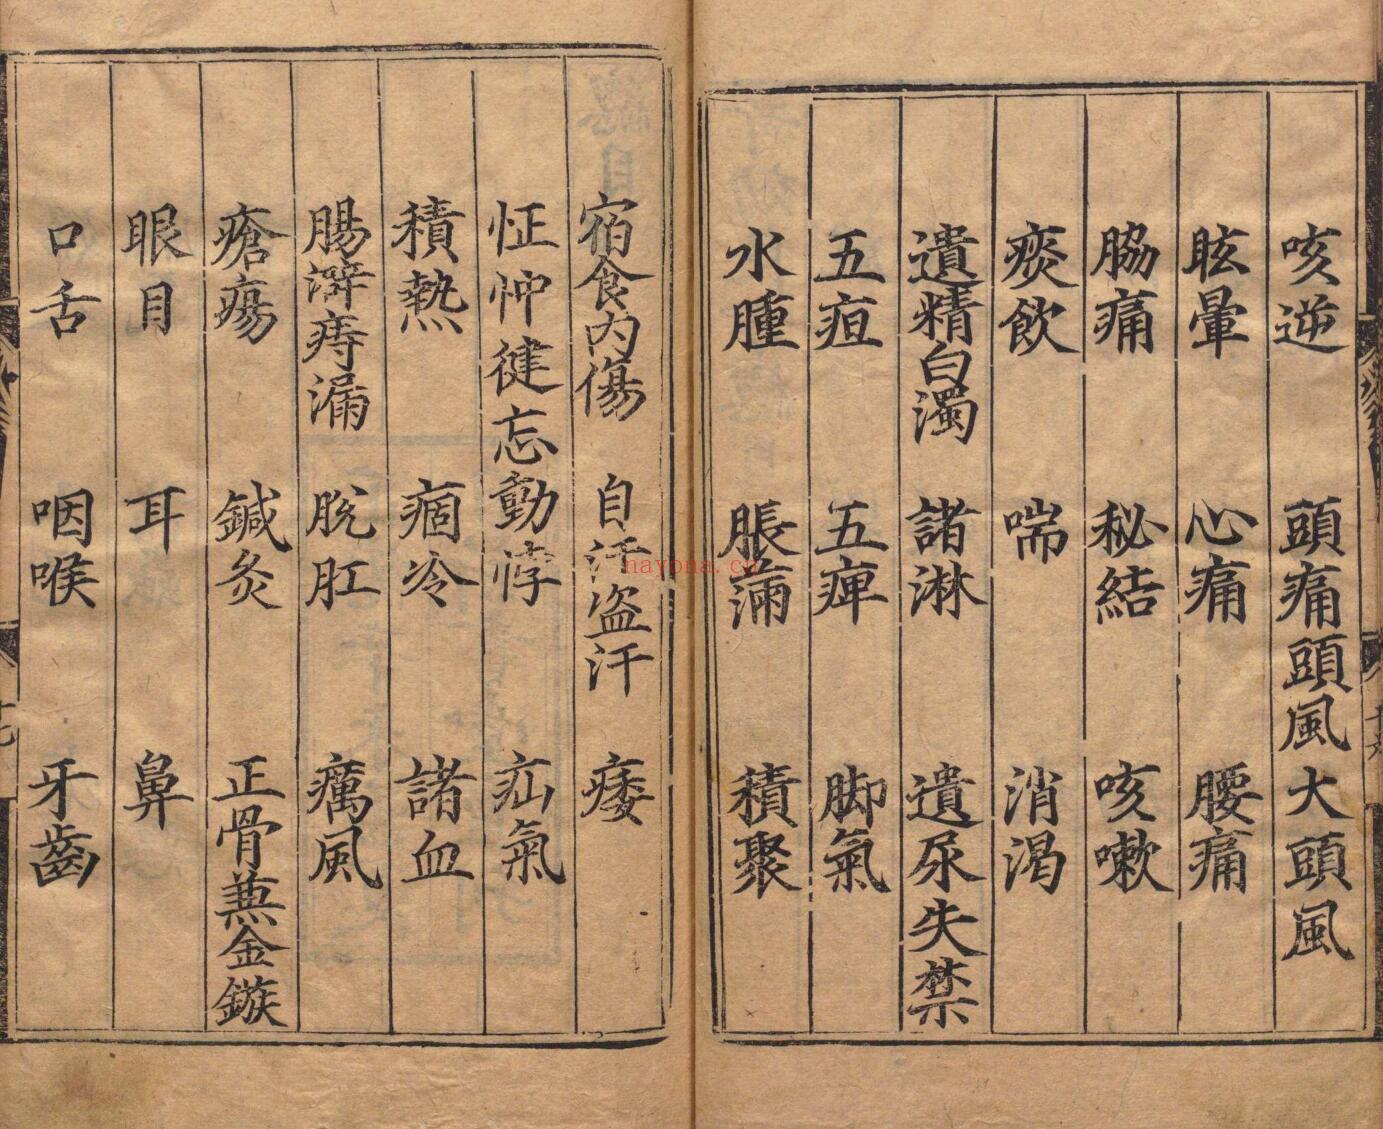 咳逆 頭痛頭風大頭風
眩暈 心痛 腰痛
脇痛 秘結 咳嗽
痰飲 喘 消渴
遺精白濁 諸淋 遺尿失禁
五疸 五痺 脚氣
水腫 脹滿 積聚
宿食內傷 自汗盗汗 痿
怔忡健忘動悸 疝氣
積熱 痼冷 諸血
腸澼痔漏 脫肛 癘風
瘡瘍 鍼灸 正骨蕪金鏃
眼目 耳 鼻
口舌 咽喉 牙齒
nayona.cn